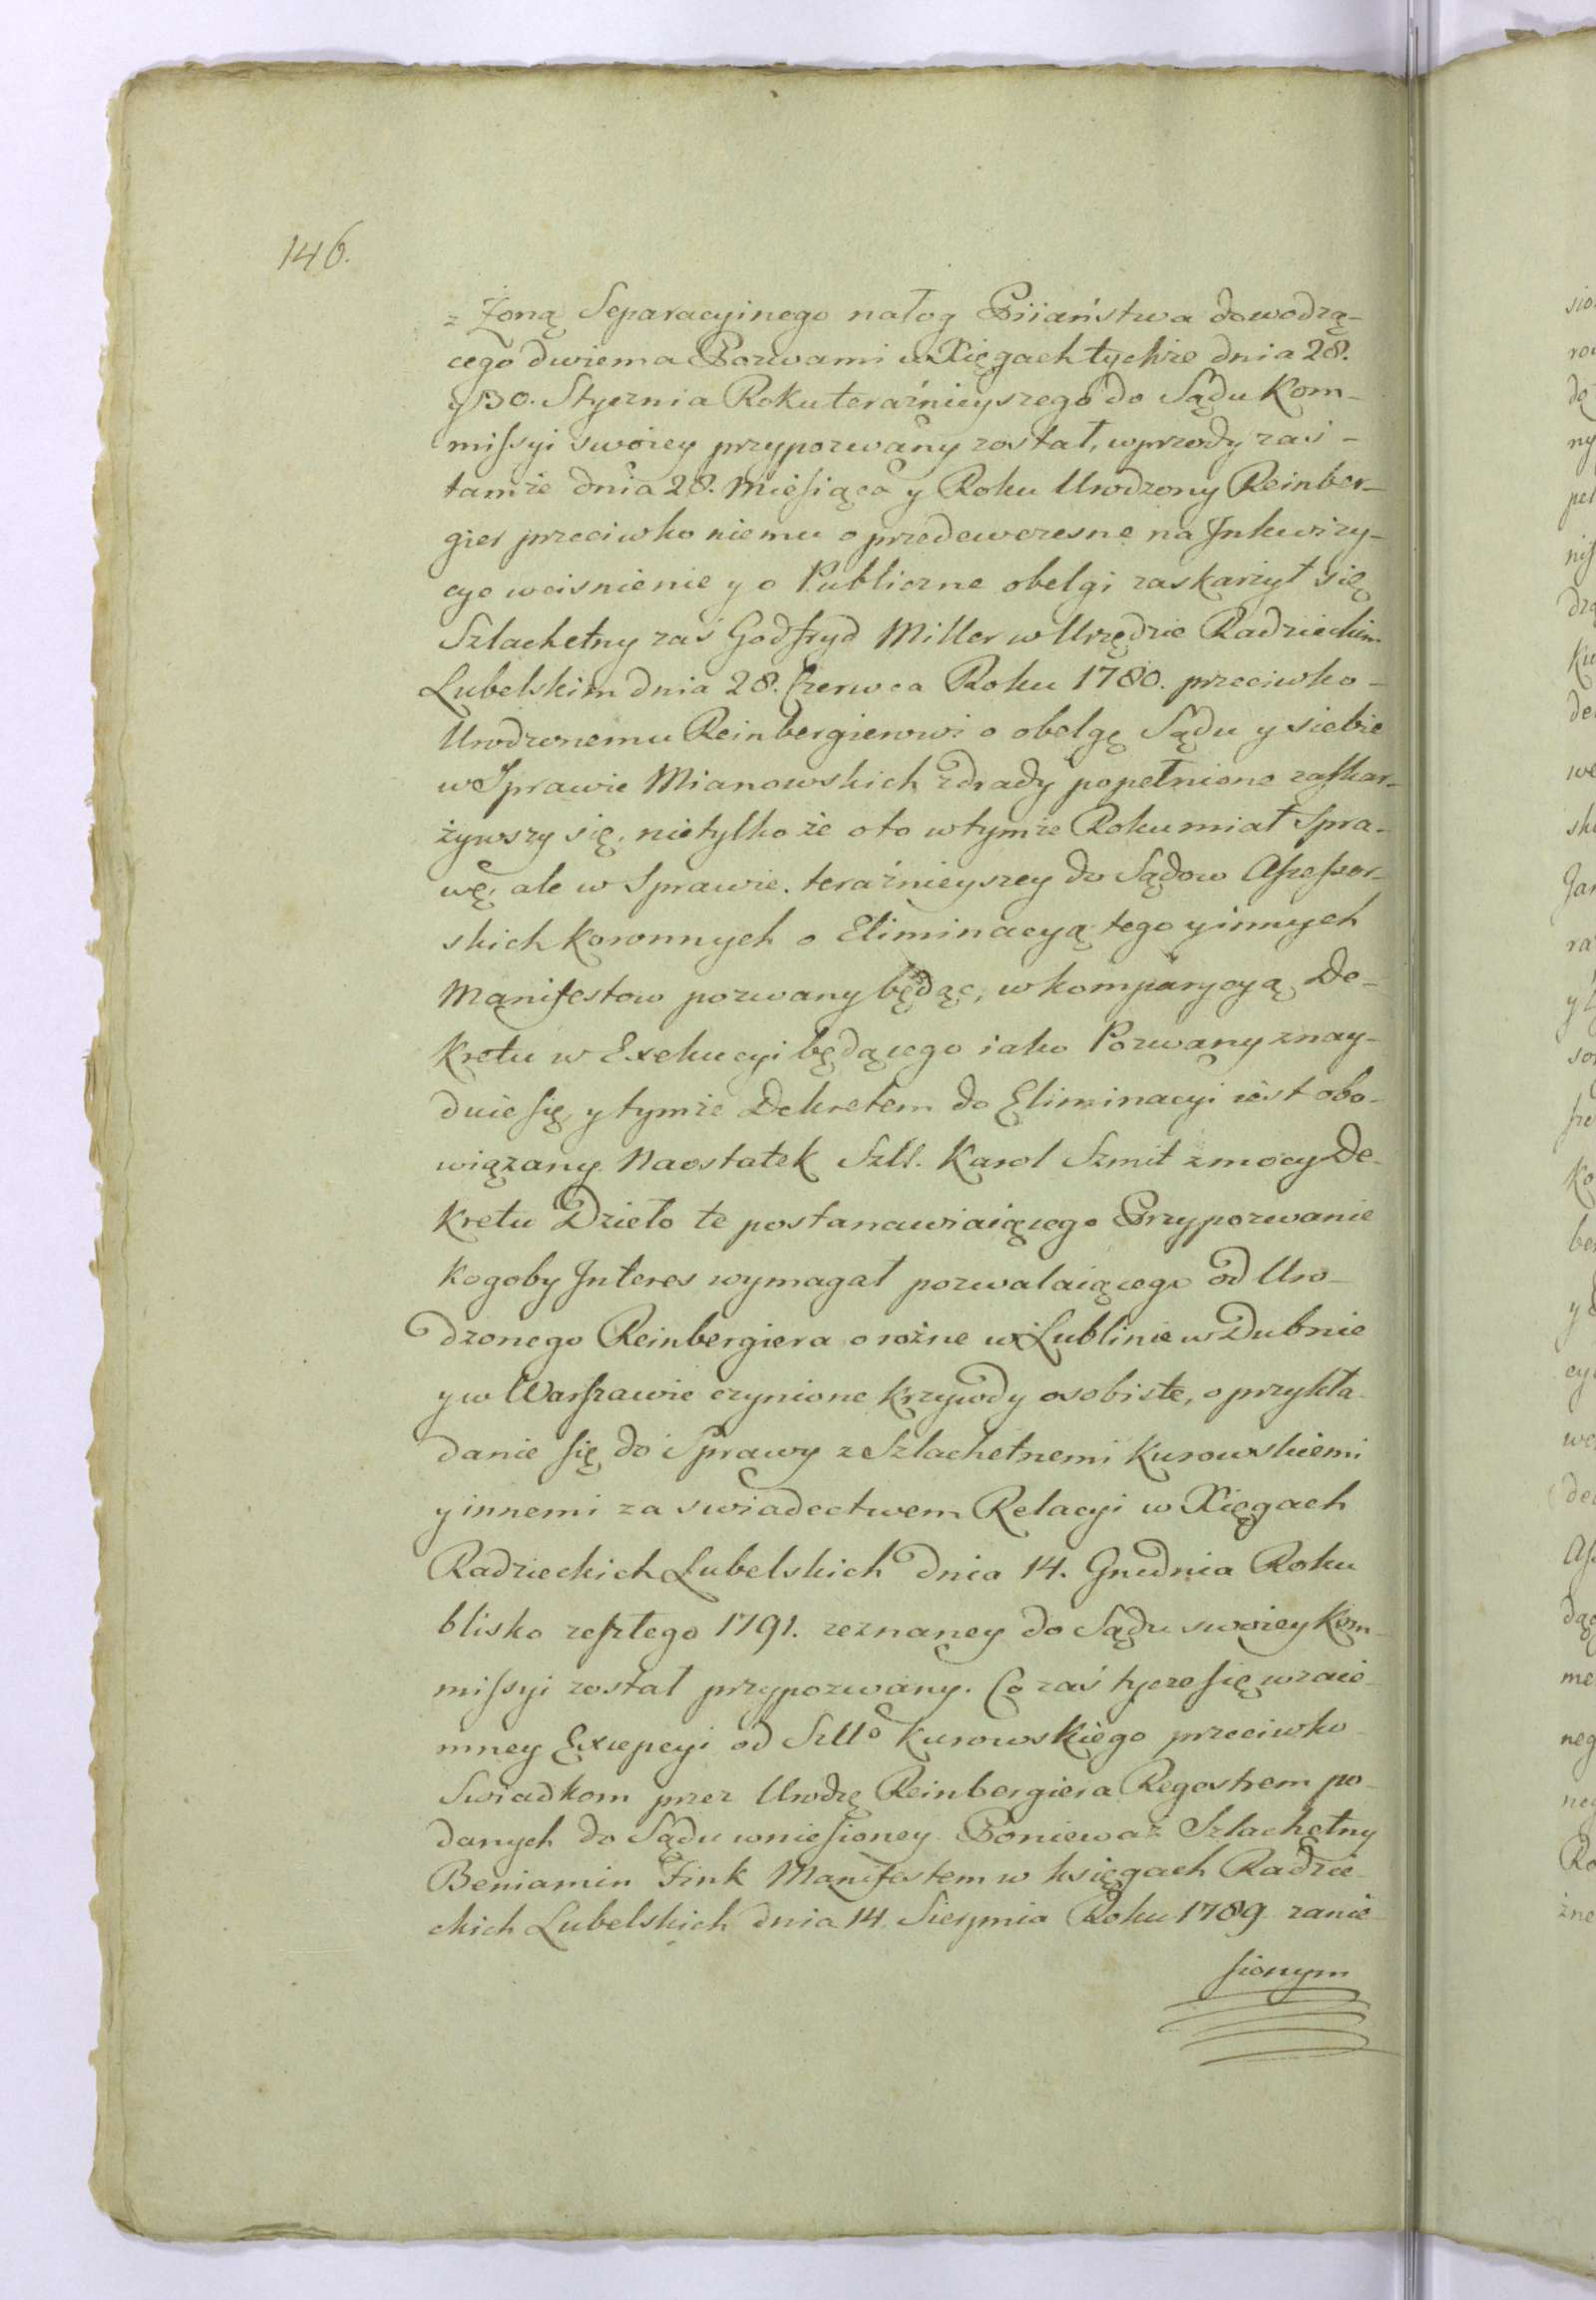 146.
z Żoną Separacyinego nałog Piiaństwa dowodzą-
cego dwiema Pozwami w Xięgach tychże dnia 28.
y 30. Stycznia Roku teraźnieyszego do Sądu Kom-
missyi swoiey przypozwany został, wprzody zaś -
tamże dnia 28. Miesiąca y Roku Urodzony Reinber-
gier przeciwko niemu o przedewczesne na Inkwizy-
cye wcisnienie y o Publiczne obelgi zaskarżył się
Szlachetny zaś Godfryd Miller w Urzędzie Radzieckim
Lubelskim dnia 28. Czerwca Roku 1780. przeciwko -
Urodzonemu Reinbergierowi o obelgę Sądu y siebie
w Sprawie Mianowskich zdrady popełnione zaskar-
żywszy się, nietylko że oto w tymże Roku miał Spra-
wę, ale w Sprawie. teraźnieyszey do Sądow Assessor-
skich Koronnych o Eliminacyą tego y innych
Manifestow pozwany będąc, w komparycyą De-
kretu w Exekucyi będącego iako Pozwany znay-
duie się, y tymże Dekretem do Eliminacyi iest obo-
wiązany. Naostatek Szll. Karol Szmit z mocy De-
kretu Dzieło te postanawiaiącego Przypozwanie
kogoby Interes wymagał pozwalaiącego od Uro-
dzonego Reinbergiera o rożne w Lublinie w Dubnie
y w Warszawie czynione krzywdy osobiste, o przykła-
danie się do Sprawy z Szlachetnemi Kurowskiemi
y innemi za swiadectwem Relacyi w Xięgach
Radzieckich Lubelskich dnia 14. Grudnia Roku
blisko zeszłego 1791. zeznaney do Sądu swoiey Kom-
missyi został przypozwany. Co zaś tycze się wzaie-
mney Excepcyi od Szllo Kurowskiego przeciwko
Swiadkom przez Urodzo Reinbergiera Regestrem po-
danych do Sądu wniesioney. Ponieważ Szlachetny
Beniamin Fink Manifestem w księgach Radzie-
ckich Lubelskich dnia 14. Sierpnia Roku 1789 zanie-
sionym